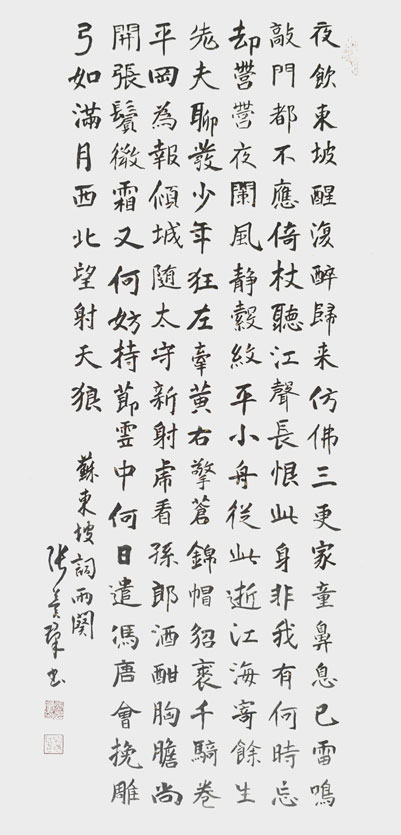 夜飲東坡醒復醉歸来仿佛三更家童鼻息已雷鳴
敲門都不應倚杖聽江聲長恨此身非我有何時忘
却營營夜闌風静縠紋平小舟從此逝江海寄餘生
老夫聊發少年狂左牽黄右擎蒼錦帽貂裘千騎卷
平岡為報傾城随太守新射虎看孫郎酒酣胸膽尚
開張鬢微霜又何妨持節雲中何日遣馮唐會挽雕
弓如滿月西北望射天狼
蘇東坡詞兩闋
張 書